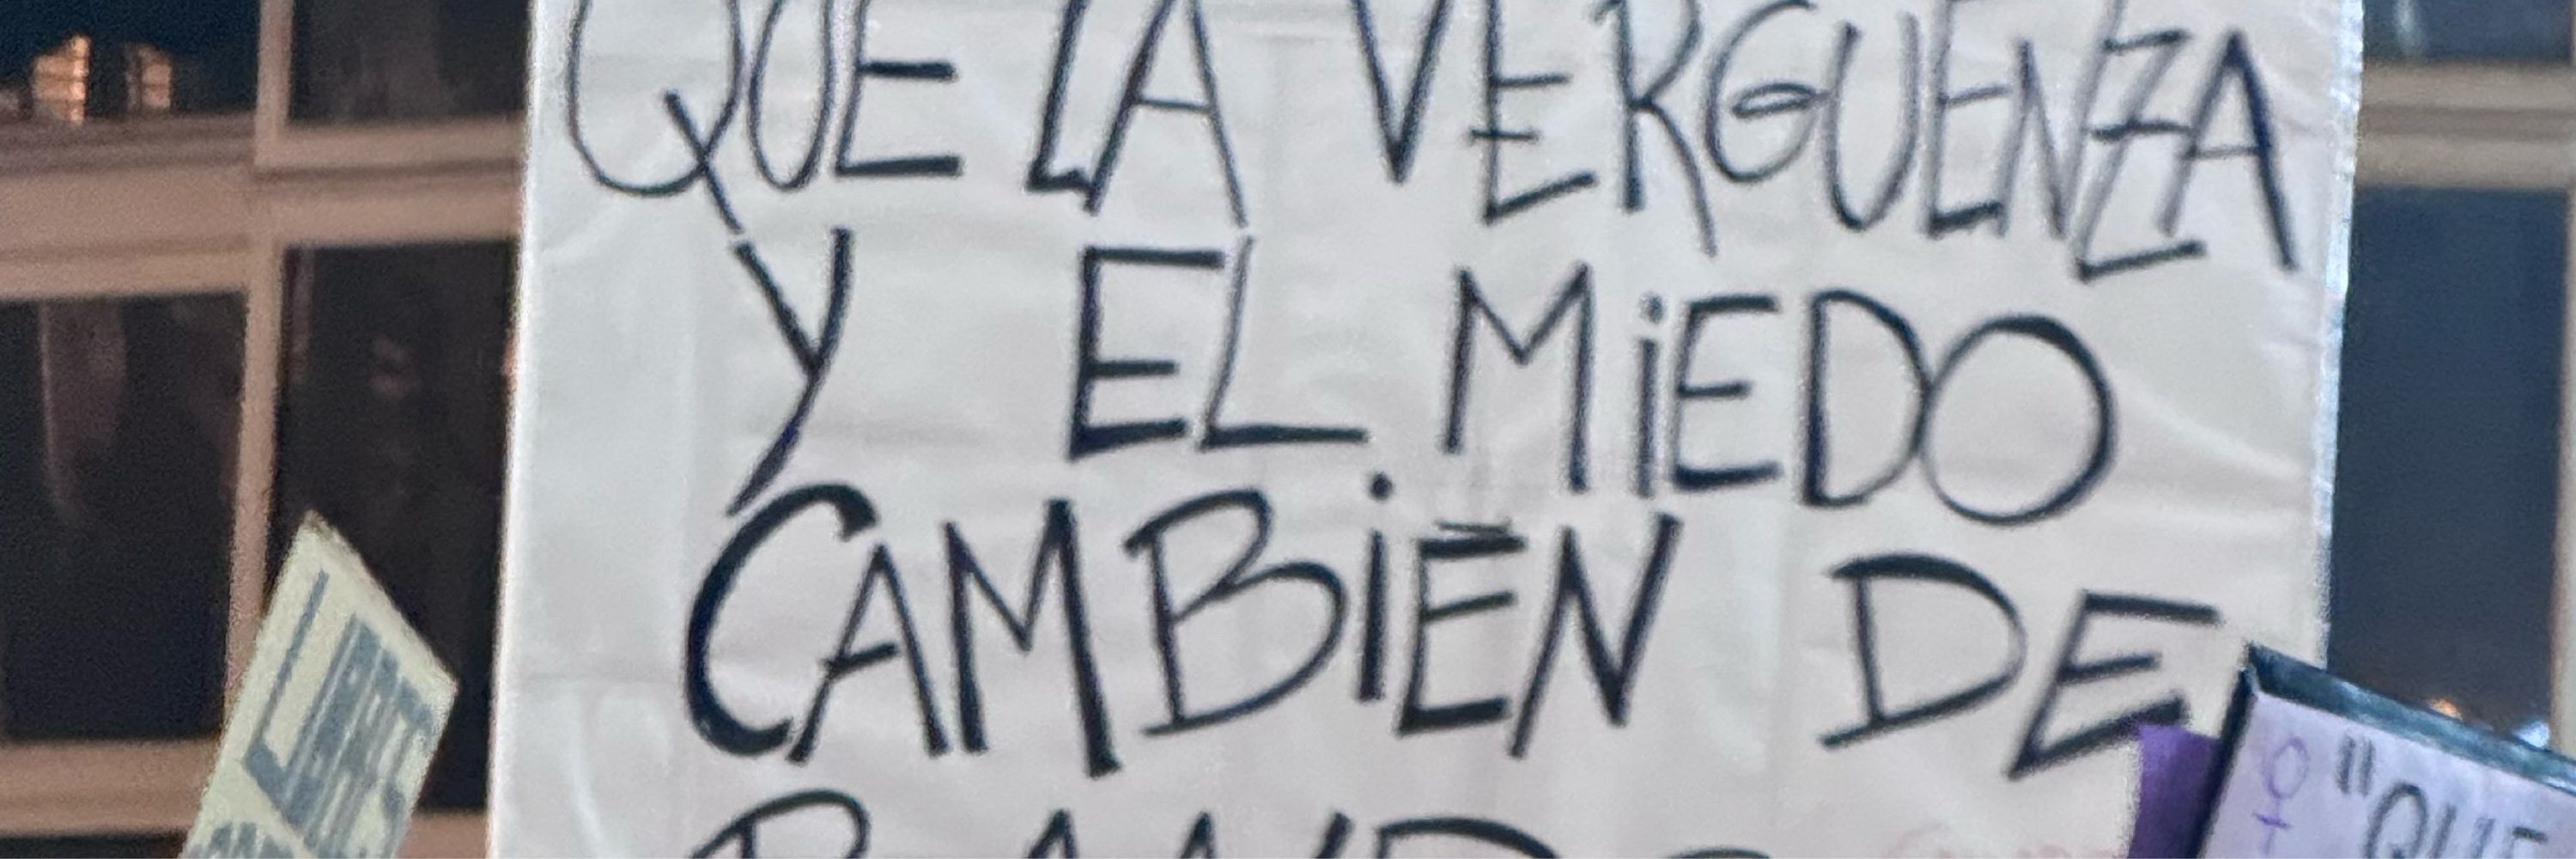 QUE LA VERGUENZA
Y EL MiEDO
CAMBiEN DE
BANDO
"QUE